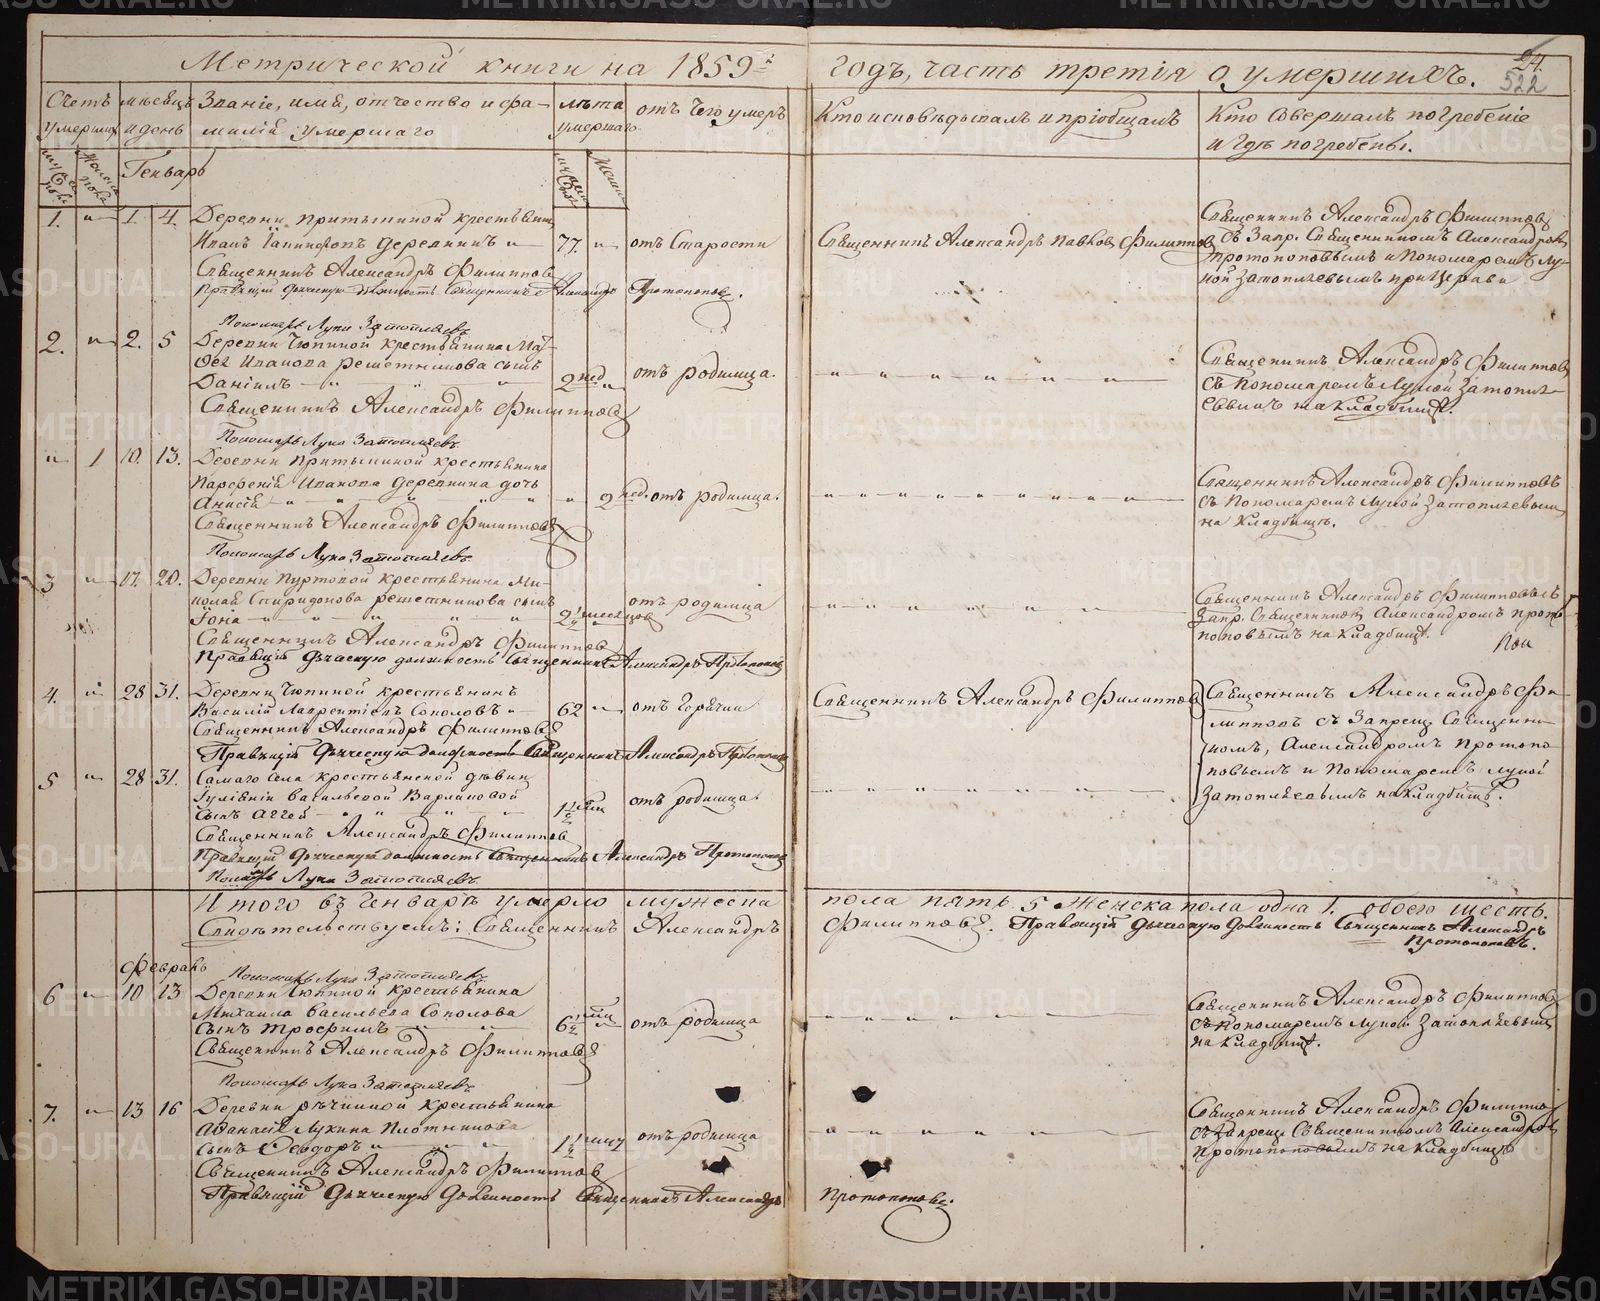 Метрической книги на 1859й годъ, часть третія о умершихъ.
24.
522
Счетъ умершихъ
мѣсяцъ и день
Званіе, имя, отчество и фамилія умершаго
лѣта умершаго
отъ чего умеръ
Кто исповѣдывалъ и пріобщалъ
Кто совершалъ погребеніе и гдѣ погребены.
Генварь
1. " 1. 4. Деревни Притыкиной крестьянинъ
Иванъ Деревнинъ " 77. " отъ Старости
Священникъ Александръ Филипповъ
Правящій дьяческую должность Священникъ Александръ Протопоповъ.
Священникъ Александръ Павловъ Филипповъ
Священникъ Александръ Филипповъ
съ Запр. Священникомъ Александромъ
Протопоповымъ и Пономаремъ Лу-
кой Затопляевымъ при Церкви
Пономарь Лука Затопляевъ
2. " 2. 5 Деревни Чюпиной крестьянина Мат-
ѳея Иванова Решетникова сынъ
Даніилъ " " " 2 нед. " отъ родимца.
Священникъ Александръ Филипповъ
Священникъ Александръ Филипповъ
съ Пономаремъ Лукой Затопля-
евымъ на кладбищѣ.
Пономарь Лука Затопляевъ
" 1 10. 13. Деревни Притыкиной крестьянина
Парфенія Иванова Деревнина дочь
Анисія " " " " " " 2 нед. отъ родимца.
Священникъ Александръ Филипповъ
Священникъ Александръ Филипповъ
съ Пономаремъ Лукой Затопляевымъ
на кладбищѣ.
Пономарь Лука Затопляевъ
3 " 17. 20. Деревни Пуртовой крестьянина Ни-
колая Спиридонова Решетникова сынъ
Іона " " " " " 2½ месяцовъ отъ родимца
Священникъ Александръ Филипповъ
Правящій дьяческую должность Священникъ Александръ Протопоповъ
Священникъ Александръ Филипповъ съ
Запр. Священникомъ Александромъ Прото-
поповымъ на кладбищѣ.
4. " 28 31. Деревни Чюпиной крестьянинъ
Василій Лаврентіевъ Соколовъ " 62 " отъ Горячки
Священникъ Александръ Филипповъ
Правящій дьяческую должность Священникъ Александръ Протопоповъ
Священникъ Александръ Филипповъ
Священникъ Александръ Фи-
липповъ съ Запрещ. Священни-
комъ, Александромъ Протопо-
повымъ и Пономаремъ Лукой
Затопляевымъ на кладбищѣ.
5 " 28 31. Самаго Села крестьянской дѣвки
Іуліаніи Васильевой Варлаковой
сынъ Аггей " " " " 1½ отъ родимца.
Священникъ Александръ Филипповъ
Правящій дьяческую должность Священникъ Александръ Протопоповъ
Пономарь Лука Затопляевъ
Итого въ Генварѣ умерло мужеска пола пять 5 женска пола одна 1. обоего шесть.
Свидѣтельствуемъ: Священникъ Александръ Филипповъ. Правящій дьяческую должность Священникъ Александръ
Протопоповъ.
Февраль
Пономарь Лука Затопляевъ
6 " 10 13 Деревни Чюпиной крестьянина
Михаила Васильева Соколова
сынъ Трофимъ " " 6½ " отъ родимца
Священникъ Александръ Филипповъ
Священникъ Александръ Филипповъ
съ Пономаремъ Лукой Затопляевымъ
на кладбищѣ.
Пономарь Лука Затопляевъ
7. " 13 16 Деревни Рѣчкиной крестьянина
Аѳанасія Лукина Плотникова
сынъ Ѳеодоръ " " " 1½ отъ родимца
Священникъ Александръ Филипповъ
Правящій дьяческую должность Священникъ Александръ Протопоповъ.
Священникъ Александръ Филиппов
съ Запрещ. Священникомъ Александромъ
Протопоповымъ на кладбищѣ
METRIKI.GASO-URAL.RU